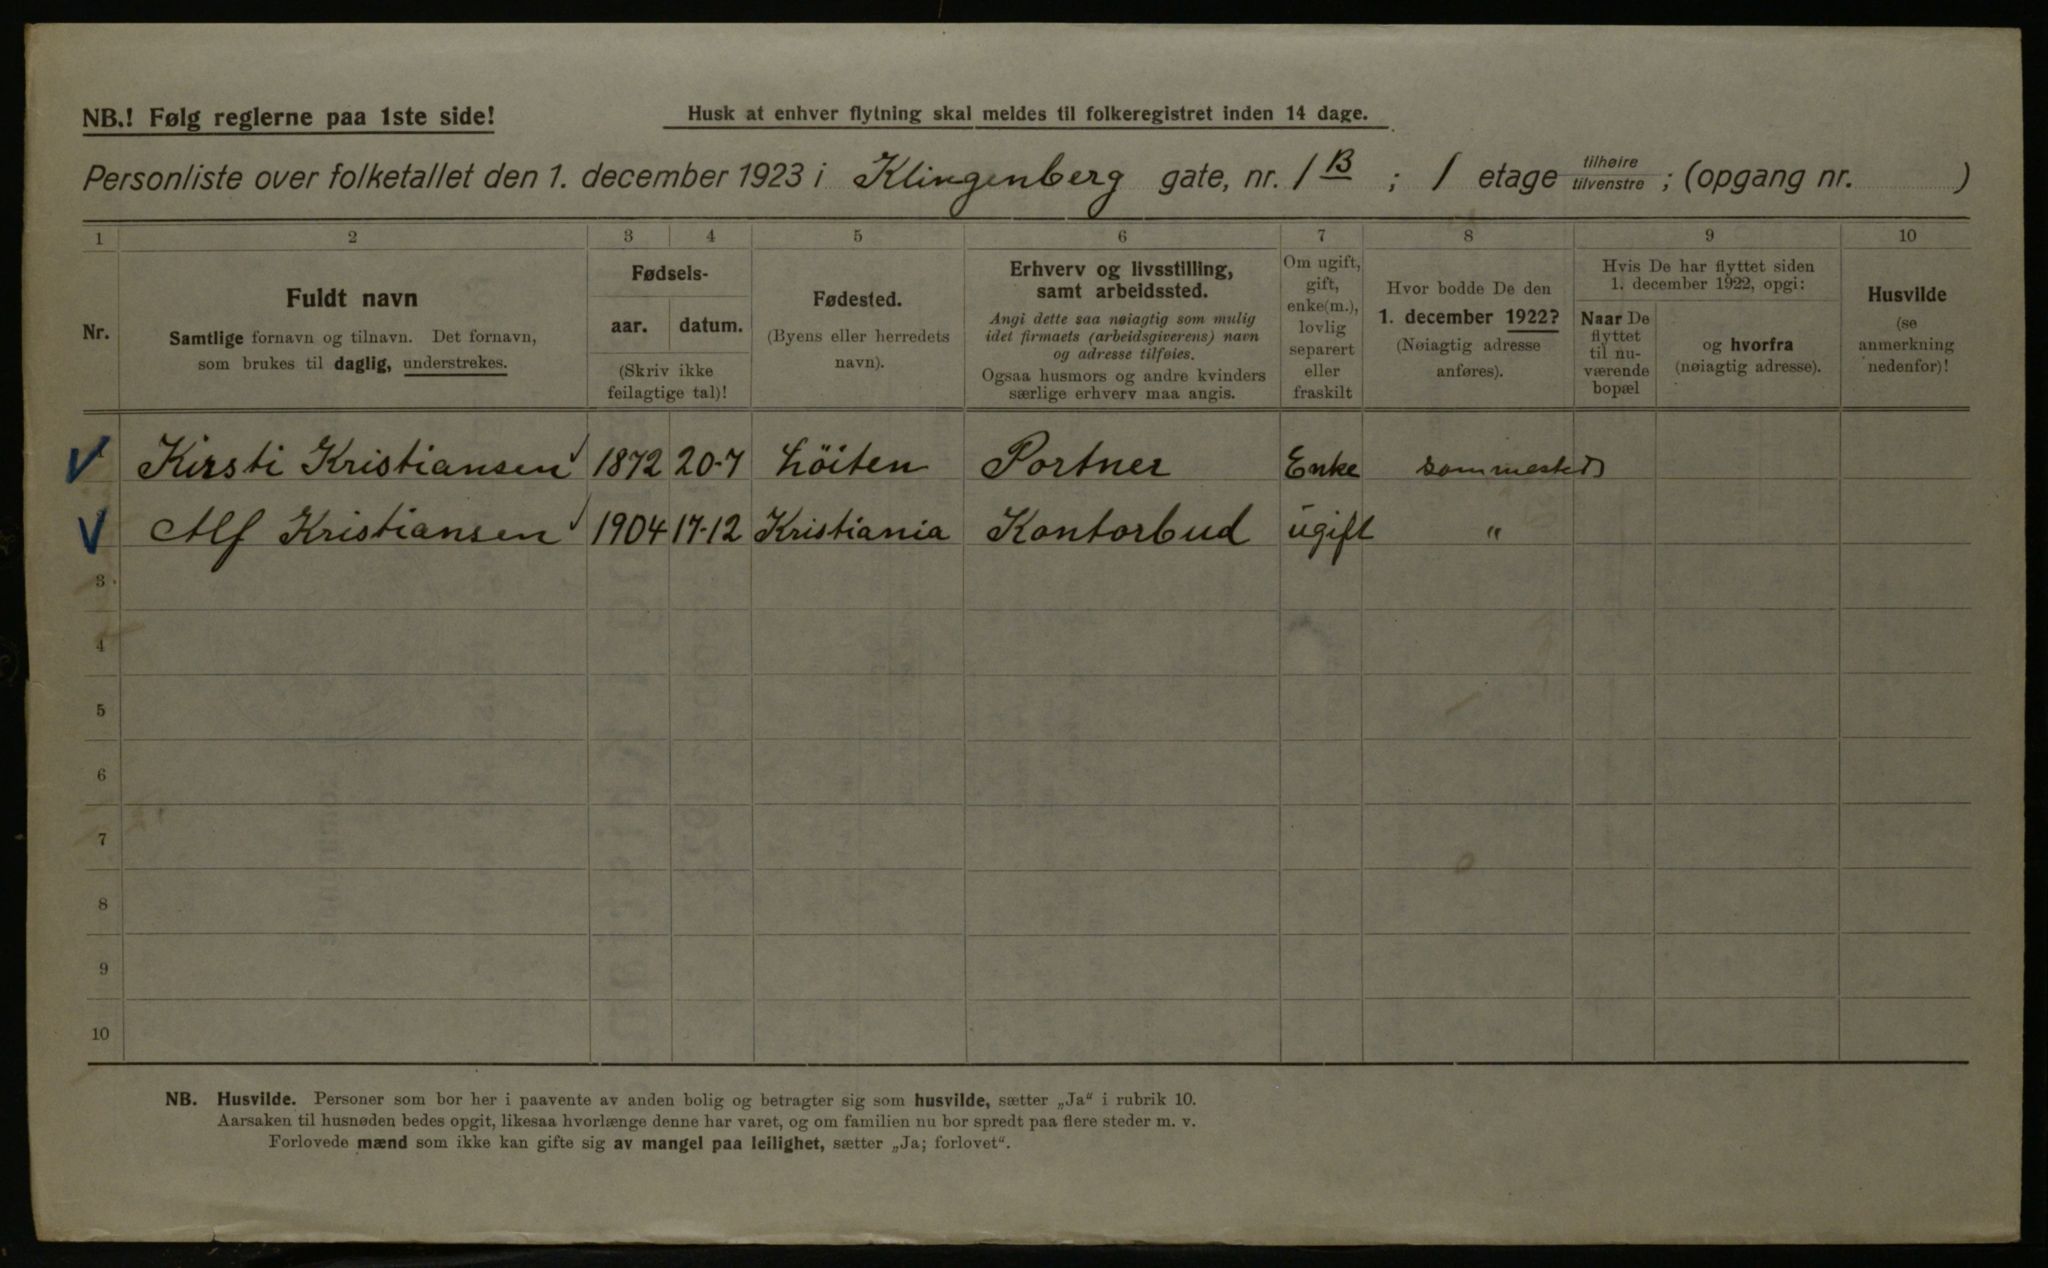 NB.! Følg reglerne paa 1ste side!
Husk at enhver flytning skal meldes til folkeregistret inden 14 dage.
Personliste over folketallet den 1. december 1923 i Klingenberg gate, nr. 1 B ; 1 etage tilhøire tilvenstre ; (opgang nr. )
1 2 3 4 5 6 7 8 9 10
Nr.
Fuldt navn
Samtlige fornavn og tilnavn. Det fornavn,
som brukes til daglig, understrekes.
Fødsels-
aar. datum.
(Skriv ikke
feilagtige tal)!
Fødested.
(Byens eller herredets
navn).
Erhverv og livsstilling,
samt arbeidssted.
Angi dette saa nøiagtig som mulig
idet firmaets (arbeidsgiverens) navn
og adresse tilføies.
Ogsaa husmors og andre kvinders
særlige erhverv maa angis.
Om ugift,
gift,
enke(m.),
lovlig
separert
eller
fraskilt
Hvor bodde De den
1. december 1922?
(Nøiagtig adresse
anføres).
Hvis De har flyttet siden
1. december 1922, opgi:
Naar De
flyttet
til nu-
værende
bopæl
og hvorfra
(nøiagtig adresse).
Husvilde
(se
anmerkning
nedenfor)!
Kirsti Kristiansen 1872 20-7 Löiten Portner Enke sammesteds
Alf Kristiansen 1904 17-12 Kristiania Kontorbud ugift "
3
4
5
6
7
8
9
10
NB. Husvilde. Personer som bor her i paavente av anden bolig og betragter sig som husvilde, sætter „Ja“ i rubrik 10.
Aarsaken til husnøden bedes opgit, likesaa hvorlænge denne har varet, og om familien nu bor spredt paa flere steder m. v.
Forlovede mænd som ikke kan gifte sig av mangel paa leilighet, sætter „Ja; forlovet“.